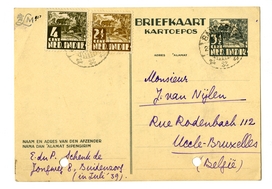 BRIEFKAART
KARTOEPOS
4
NED. INDIE
2½
NED. INDIE
3½
NED. INDIE
Monsieur
J. van Nijlen
Rue Rodenbach 112
Uccle-Bruxelles
(België)
NAAM EN ADRES VAN DEN AFZENDER
NAMA DAN ALAMAT SIPENGIRIM
E. du P.
8, Buitenzorg
(in Juli '39).